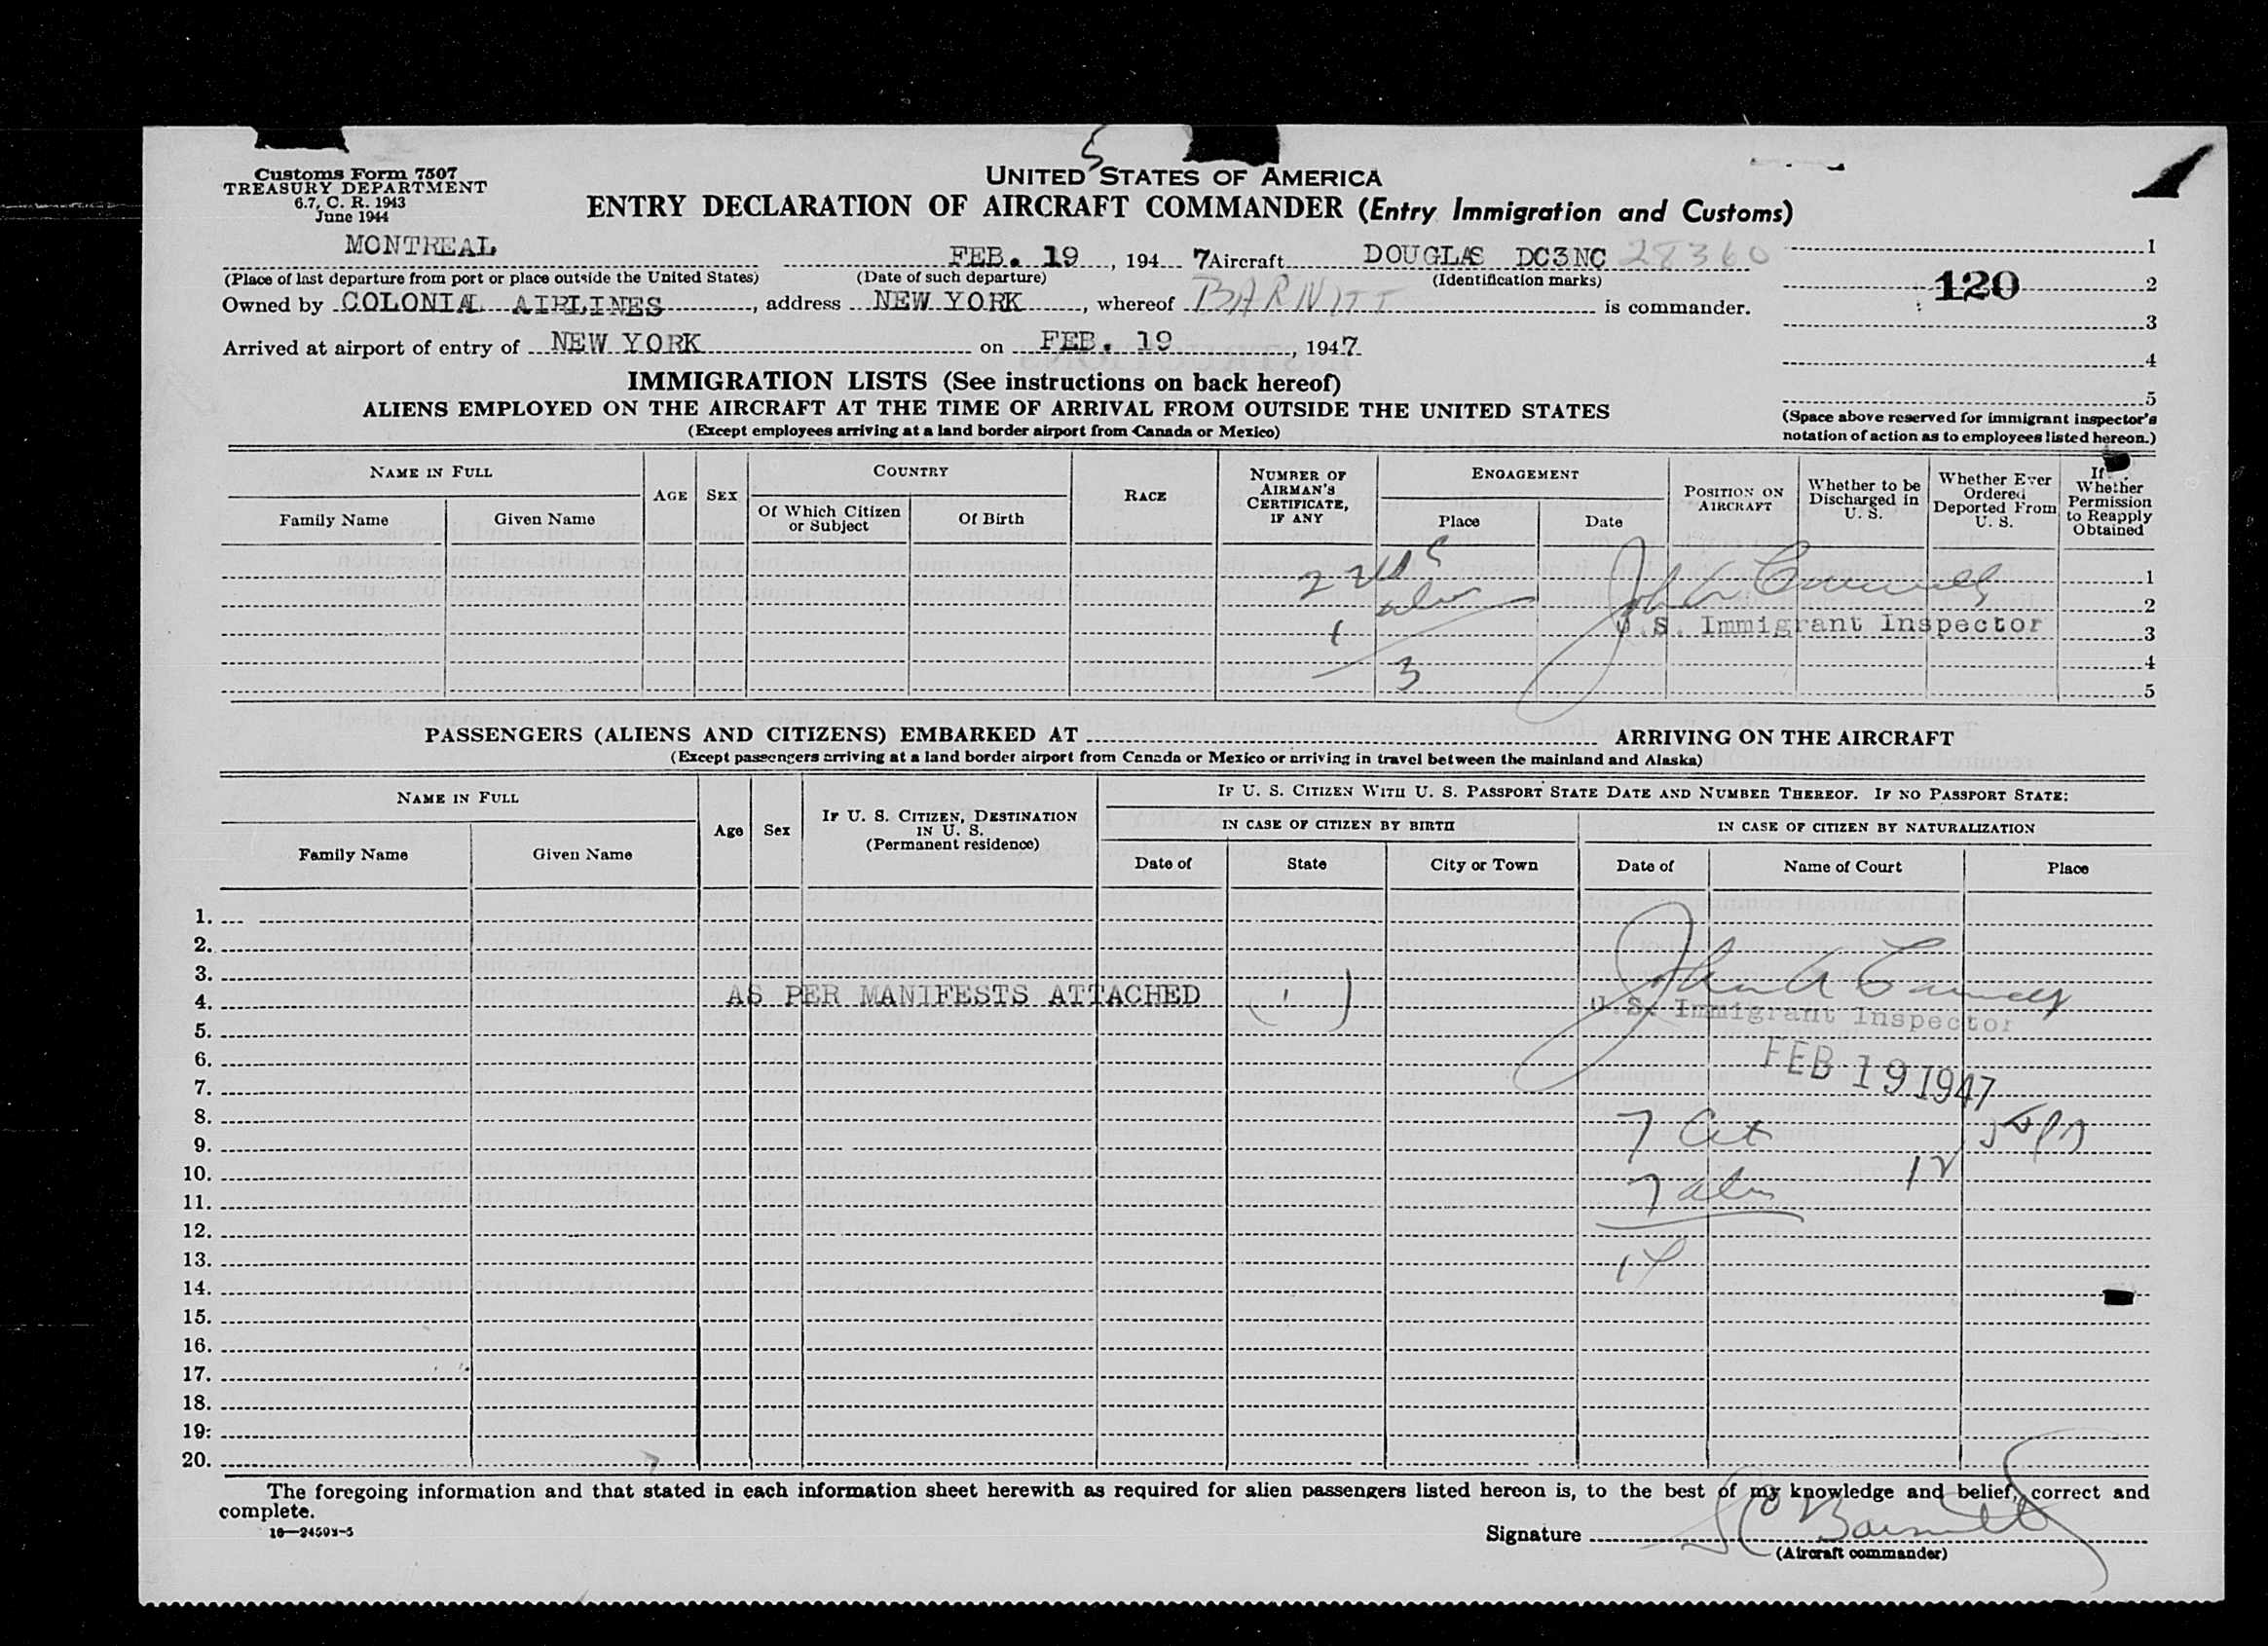 5
Customs Form 7507
TREASURY DEPARTMENT
6.7, C. R. 1943
June 1944
UNITED STATES OF AMERICA
ENTRY DECLARATION OF AIRCRAFT COMMANDER (Entry Immigration and Customs)
MONTREAL FEB. 19, 194 7 Aircraft DOUGLAS DC3NC 28360
(Place of last departure from port or place outside the United States) (Date of such departure) (Identification marks)
Owned by COLONIAL AIRLINES, address NEW YORK, whereof BARNITT is commander.
Arrived at airport of entry of NEW YORK on FEB. 19, 1947
1
120 2
3
4
5
(Space above reserved for immigrant inspector's
notation of action as to employees listed hereon.)
IMMIGRATION LISTS (See instructions on back hereof)
ALIENS EMPLOYED ON THE AIRCRAFT AT THE TIME OF ARRIVAL FROM OUTSIDE THE UNITED STATES
(Except employees arriving at a land border airport from Canada or Mexico)
NAME IN FULL
Family Name Given Name
AGE
SEX
COUNTRY
Of Which Citizen or Subject Of Birth
RACE
NUMBER OF AIRMAN'S CERTIFICATE, IF ANY
ENGAGEMENT
Place Date
POSITION ON AIRCRAFT
Whether to be Discharged in U. S.
Whether Ever Ordered Deported From U. S.
If Whether Permission to Reapply Obtained
2 1
2
1 U.S. Immigrant Inspector 3
3 4
5
PASSENGERS (ALIENS AND CITIZENS) EMBARKED AT ARRIVING ON THE AIRCRAFT
(Except passengers arriving at a land border airport from Canada or Mexico or arriving in travel between the mainland and Alaska)
NAME IN FULL
Family Name Given Name
Age
Sex
IF U. S. CITIZEN, DESTINATION IN U. S.
(Permanent residence)
IF U. S. CITIZEN WITH U. S. PASSPORT STATE DATE AND NUMBER THEREOF. IF NO PASSPORT STATE:
IN CASE OF CITIZEN BY BIRTH IN CASE OF CITIZEN BY NATURALIZATION
Date of State City or Town Date of Name of Court Place
1.
2.
3.
4. AS PER MANIFESTS ATTACHED ( 1 ) U.S. Immigrant Inspector
5.
6. FEB 19 1947
7.
8. 7 Cit
9.
10. 7 12
11.
12.
13. 14
14.
15.
16.
17.
18.
19.
20.
The foregoing information and that stated in each information sheet herewith as required for alien passengers listed hereon is, to the best of my knowledge and belief, correct and
complete.
Signature
(Aircraft commander)